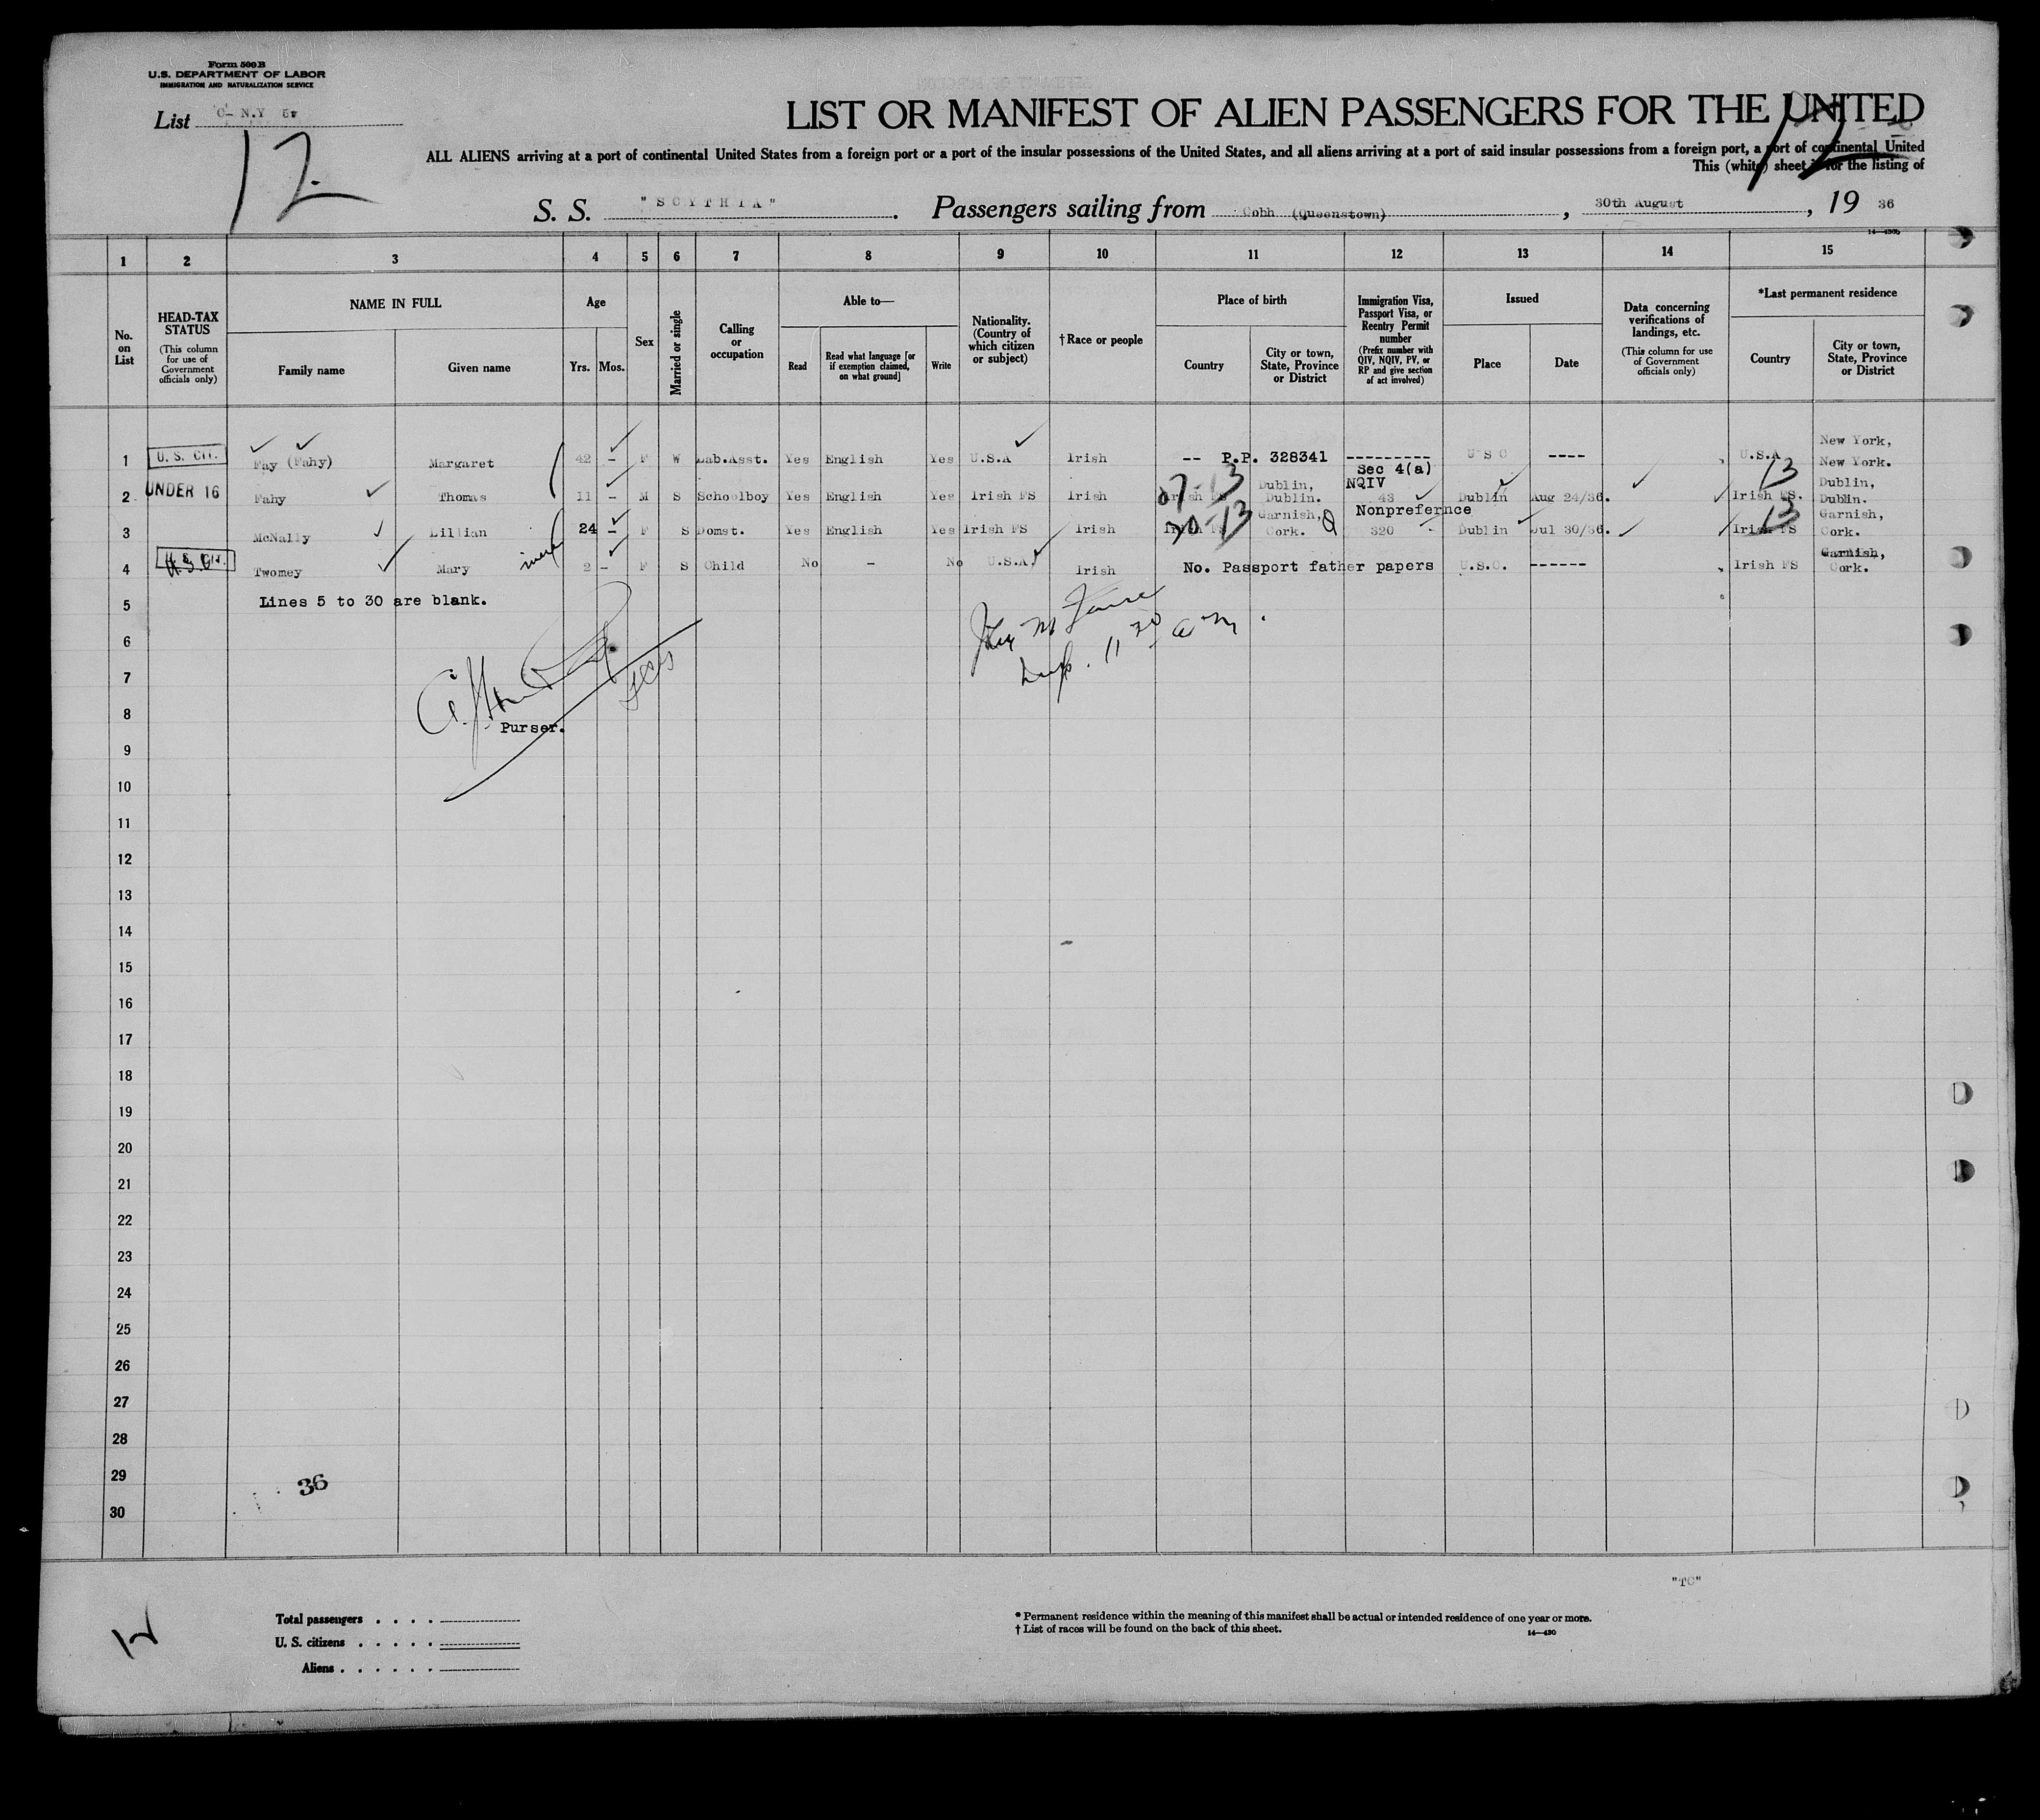 Form 500 B
U.S. DEPARTMENT OF LABOR
IMMIGRATION AND NATURALIZATION SERVICE
List C- N.Y
12
12
LIST OR MANIFEST OF ALIEN PASSENGERS FOR THE UNITED
ALL ALIENS arriving at a port of continental United States from a foreign port or a port of the insular possessions of the United States, and all aliens arriving at a port of said insular possessions from a foreign port, a port of continental United
This (white) sheet is for the listing of
S. S. "SCYTHIA" . Passengers sailing from Cobh (Queenstown) , 30th August , 19 36
1 2 3 4 5 6 7 8 9 10 11 12 13 14 15
No. on List
HEAD-TAX STATUS (This column for use of Government officials only)
NAME IN FULL
Family name Given name
Age
Yrs. Mos.
Sex
Married or single
Calling or occupation
Able to—
Read Read what language [or if exemption claimed, on what ground] Write
Nationality. (Country of which citizen or subject)
†Race or people
Place of birth
Country City or town, State, Province or District
Immigration Visa, Passport Visa, or Reentry Permit number (Prefix number with QIV, NQIV, PV, or RP and give section of act involved)
Issued
Place Date
Data concerning verifications of landings, etc. (This column for use of Government officials only)
*Last permanent residence
Country City or town, State, Province or District
1 U. S. CIT. Fay (Fahy) Margaret 42 - F W Lab.Asst. Yes English Yes U.S.A Irish -- P.P. 328341 --------- U S C ---- U.S.A New York, New York.
2 UNDER 16 Fahy Thomas 11 - M S Schoolboy Yes English Yes Irish FS Irish Irish FS 07-13 Dublin, Dublin. Sec 4(a) NQIV 43 Dublin Aug 24/36. Irish FS. 13 Dublin, Dublin.
3 McNally Lillian 24 - F S Domst. Yes English Yes Irish FS Irish Irish FS 70-13 Garnish, Cork. Q Nonprefernce 320 Dublin Jul 30/36. Irish FS 13 Garnish, Cork.
4 U.S. CIT. Twomey Mary 2 - F S Child No - No U.S.A. Irish No. Passport father papers U.S.C. ------ Irish FS Garnish, Cork.
5 Lines 5 to 30 are blank.
6
7
8 Purser.
9
10
11
12
13
14
15
16
17
18
19
20
21
22
23
24
25
26
27
28
29 36
30
"TC"
12
Total passengers
U. S. citizens
Aliens
* Permanent residence within the meaning of this manifest shall be actual or intended residence of one year or more.
† List of races will be found on the back of this sheet.
14—430